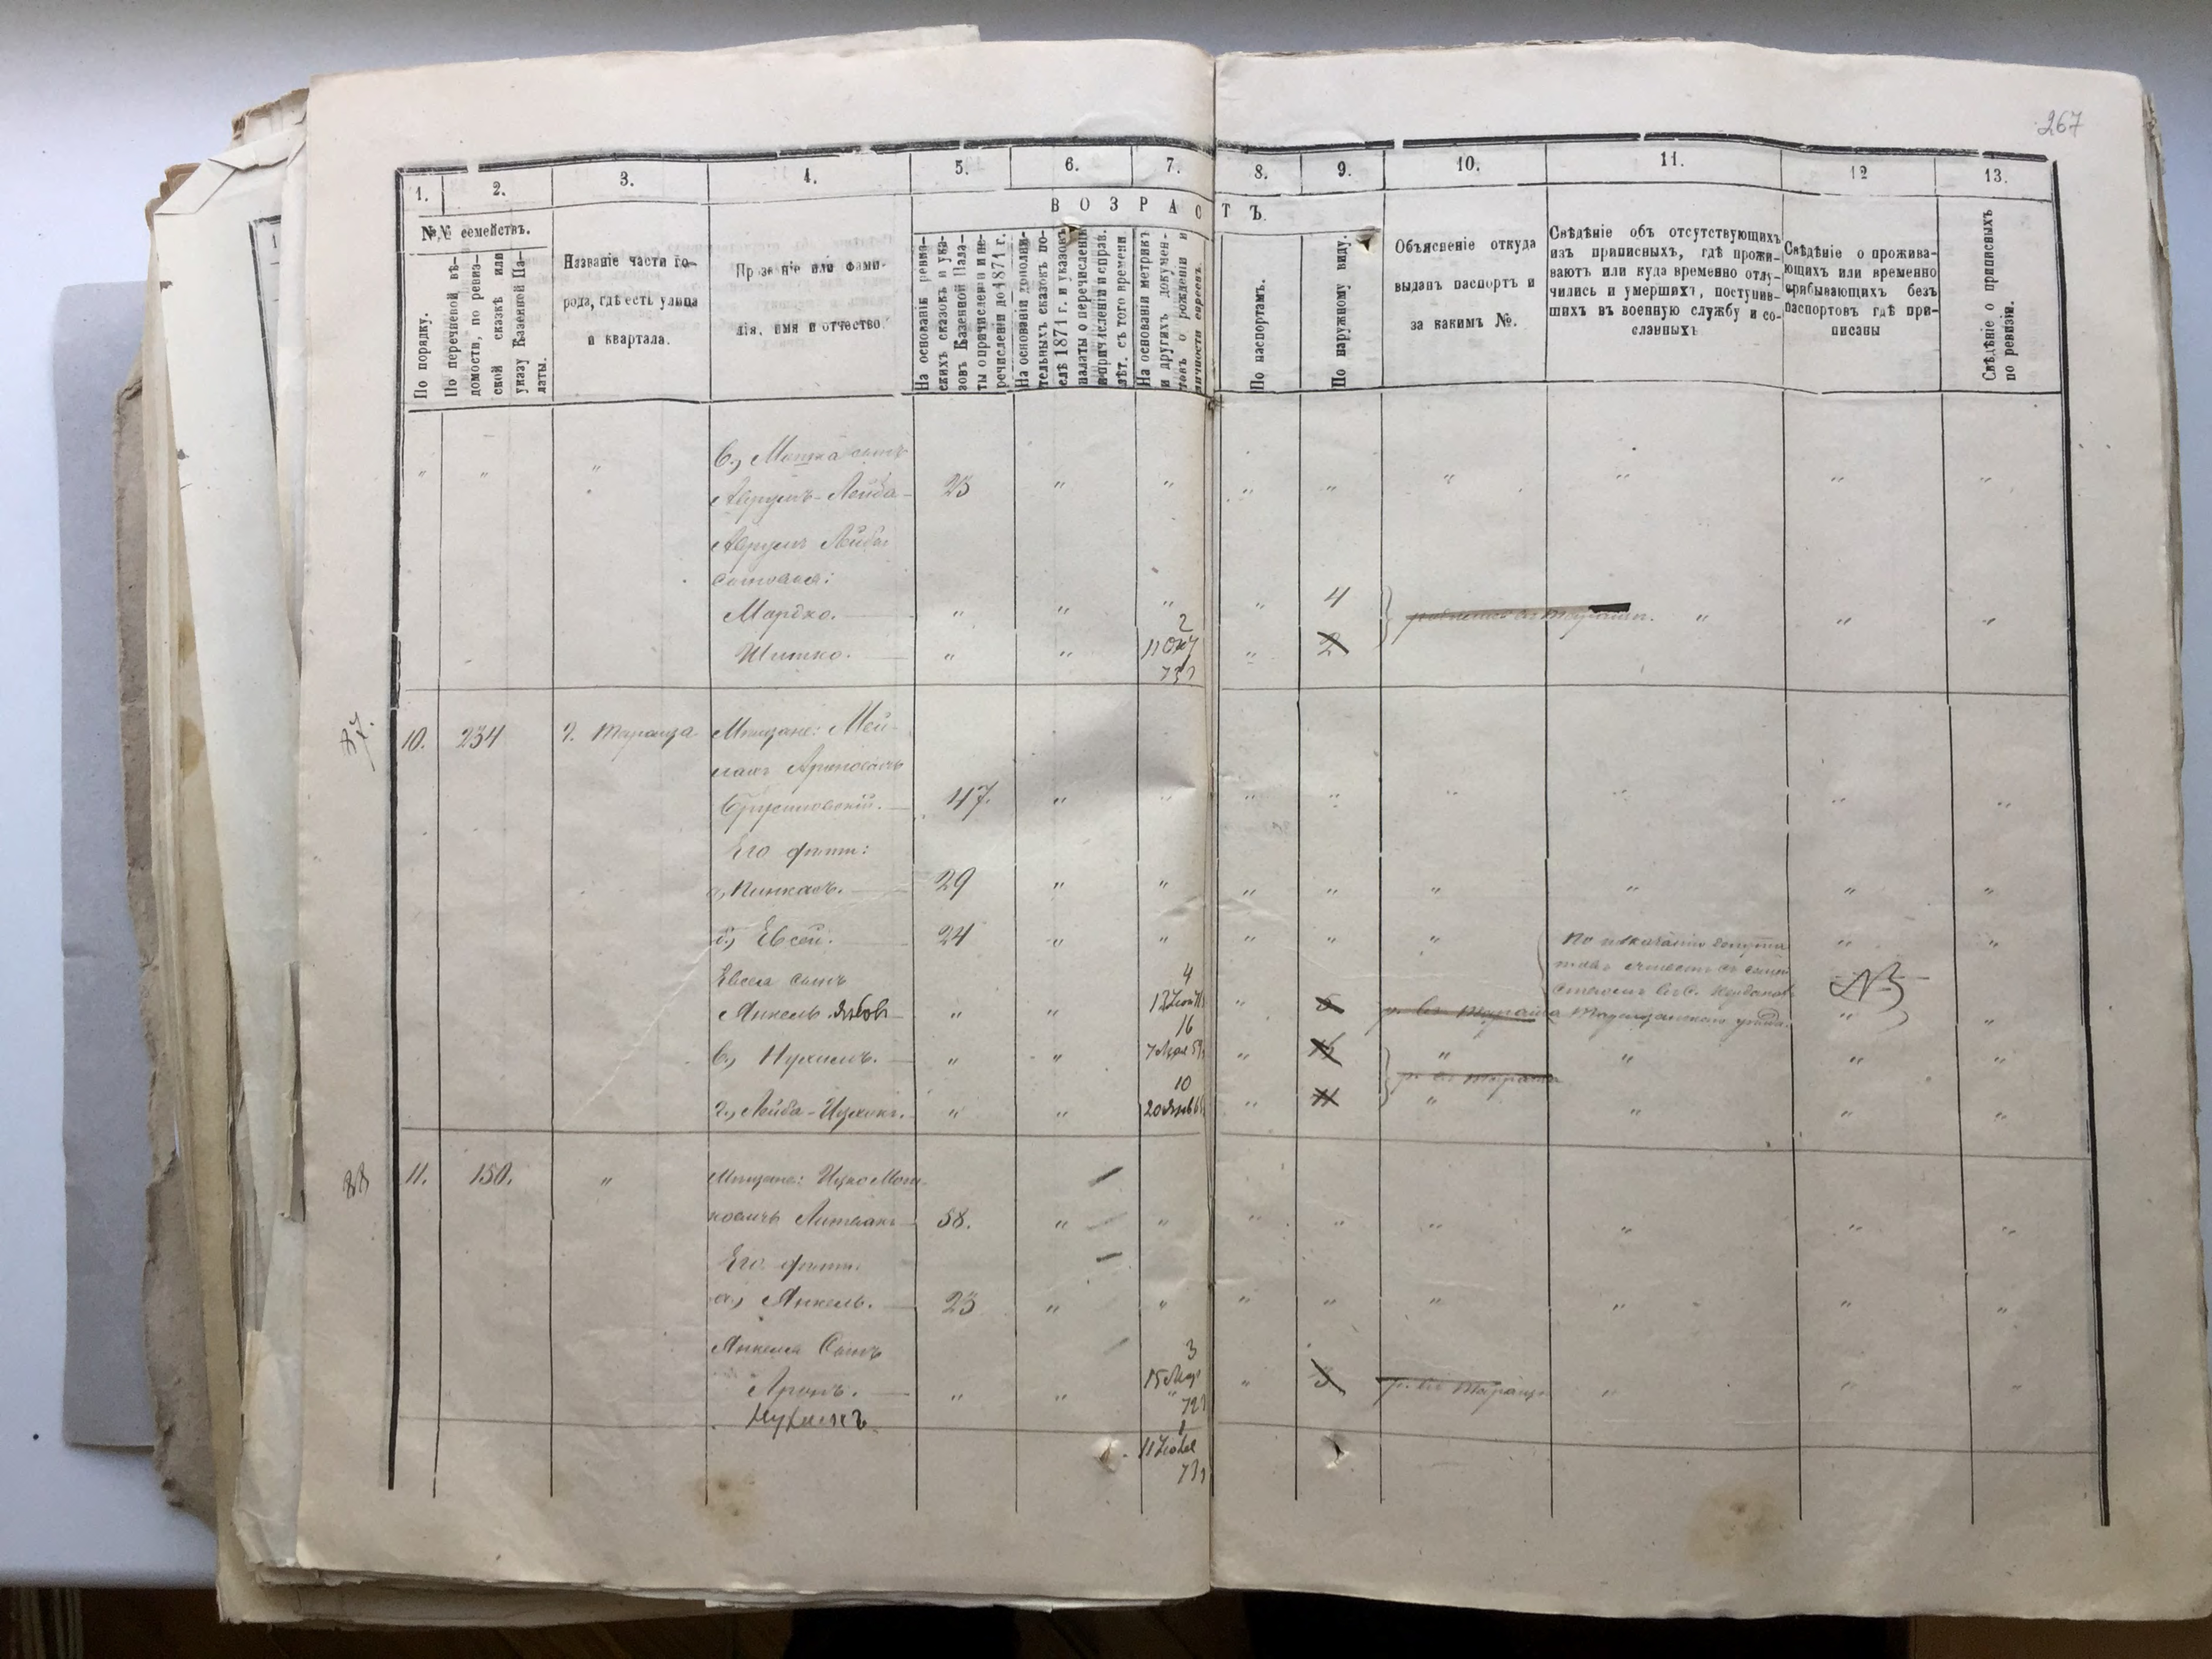 267
1. 2. 3. 4. 5. 6. 7. 8. 9. 10. 11. 12 13.
ВОЗРАСТЪ.
№№ семействъ.
По порядку.
По перечневой вѣ-
домости, по ревиз-
ской сказкѣ или
указу Казенной Па-
латы.
Названіе части го-
рода, гдѣ есть улица
и квартала.
Прозваніе или фами-
лія, имя и отчество.
На основаніи ревиз-
скихъ сказокъ и ука-
зовъ Казенной Пала-
ты о причисленіи и пе-
речисленіи до 1871 г.
На основаніи дополни-
тельныхъ сказокъ по-
слѣ 1871 г. и указовъ
палаты о перечисленіи
и причисленіи и справ.
лѣт. съ того времени
На основаніи метрикъ
и другихъ докумен-
товъ о рожденіи и
личности евреевъ.
По паспортамъ.
По наружному виду.
Объясненіе откуда
выданъ паспортъ и
за какимъ №.
Свѣдѣніе объ отсутствующихъ
изъ приписныхъ, гдѣ прожи-
ваютъ или куда временно отлу-
чились и умершихъ, поступив-
шихъ въ военную службу и со-
сланныхъ
Свѣдѣніе о прожива-
ющихъ или временно
прибывающихъ безъ
паспортовъ гдѣ при-
писаны
Свѣдѣніе о приписныхъ
по ревизіи.
" " " в., Мошка сынъ
Аврумъ-Лейба 23 " " " " " " " "
Аврумъ Лейбы
сыновья:
Мордко. " " " " 4 " " "
2
Шимко. " " 11 Окт " 2
73 г
27.
10. 234 г. Тараща Мѣщане: Мей-
Ароновичъ
47. " " " " " " " "
Его дѣти:
а, Пинкасъ. 29 " " " " " " " "
б., Евсей. 24 " " " " " По показанію депута
Евсея сынъ 4
Анкель Янков " " " 5 р. въ Тараща Таращанскаго уѣзда.
NB
16
в., Нухимъ. " " 7 Мая 59 " 15 " " " "
р. въ Тараща
10
г., Лейба-Ицхокъ. " " 20 Янв " 11 " " " "
28
11. 150. " Мѣщане: Ицко Мош-
ковичъ Литвакъ 58. " " " " " " " "
Его дѣти:
а, Анкель. 23 " " " " " " " "
Анкеля Сынъ 3
Аронъ. " " 15 Мар " 3 р. въ Тараща " " "
72 г
Нухимъ
11 Іюля
73 г